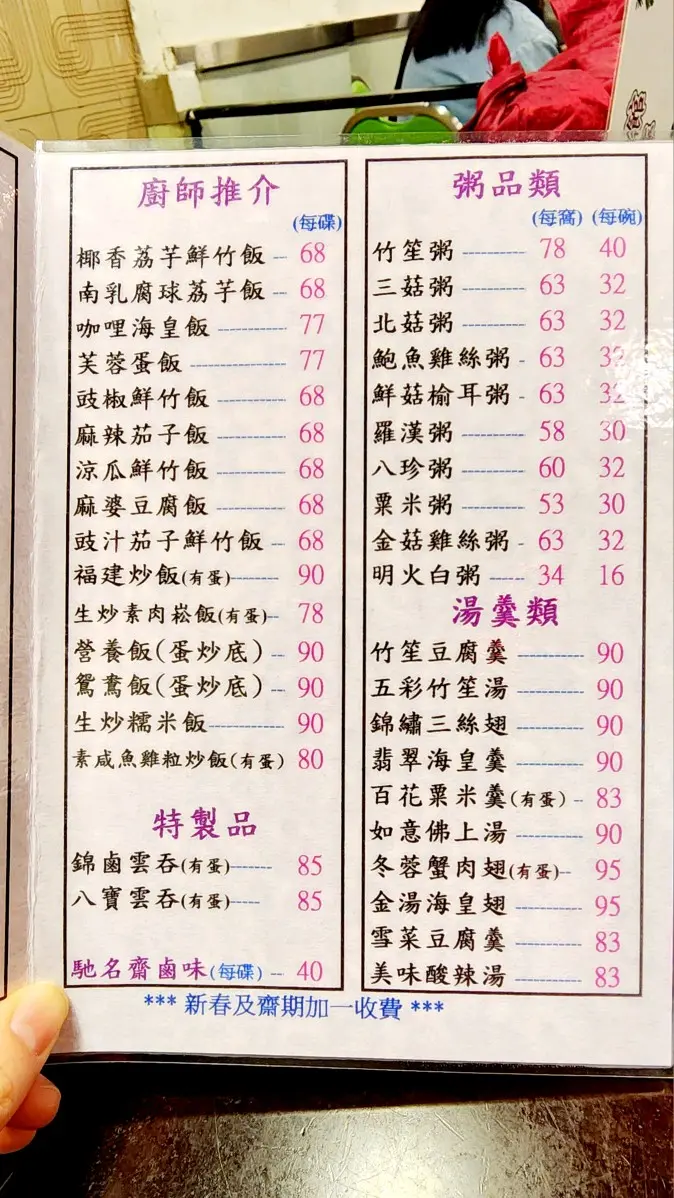 廚師推介
(每碟)
椰香荔芋鮮竹飯 68
南乳腐球荔芋飯 68
咖哩海皇飯 77
芙蓉蛋飯 77
豉椒鮮竹飯 68
麻辣茄子飯 68
涼瓜鮮竹飯 68
麻婆豆腐飯 68
豉汁茄子鮮竹飯 68
福建炒飯(有蛋) 90
生炒素肉崧飯(有蛋) 78
營養飯(蛋炒底) 90
鴛鴦飯(蛋炒底) 90
生炒糯米飯 90
素咸魚雞粒炒飯(有蛋) 80
特製品
錦鹵雲吞(有蛋) 85
八寶雲吞(有蛋) 85
馳名齋鹵味(每碟) 40
粥品類
(每窩) (每碗)
竹笙粥 78 40
三菇粥 63 32
北菇粥 63 32
鮑魚雞絲粥 63 32
鮮菇榆耳粥 63 32
羅漢粥 58 30
八珍粥 60 32
粟米粥 53 30
金菇雞絲粥 63 32
明火白粥 34 16
湯羹類
竹笙豆腐羹 90
五彩竹笙湯 90
錦繡三絲翅 90
翡翠海皇羹 90
百花粟米羹(有蛋) 83
如意佛上湯 90
冬蓉蟹肉翅(有蛋) 95
金湯海皇翅 95
雪菜豆腐羹 83
美味酸辣湯 83
*** 新春及齋期加一收費 ***